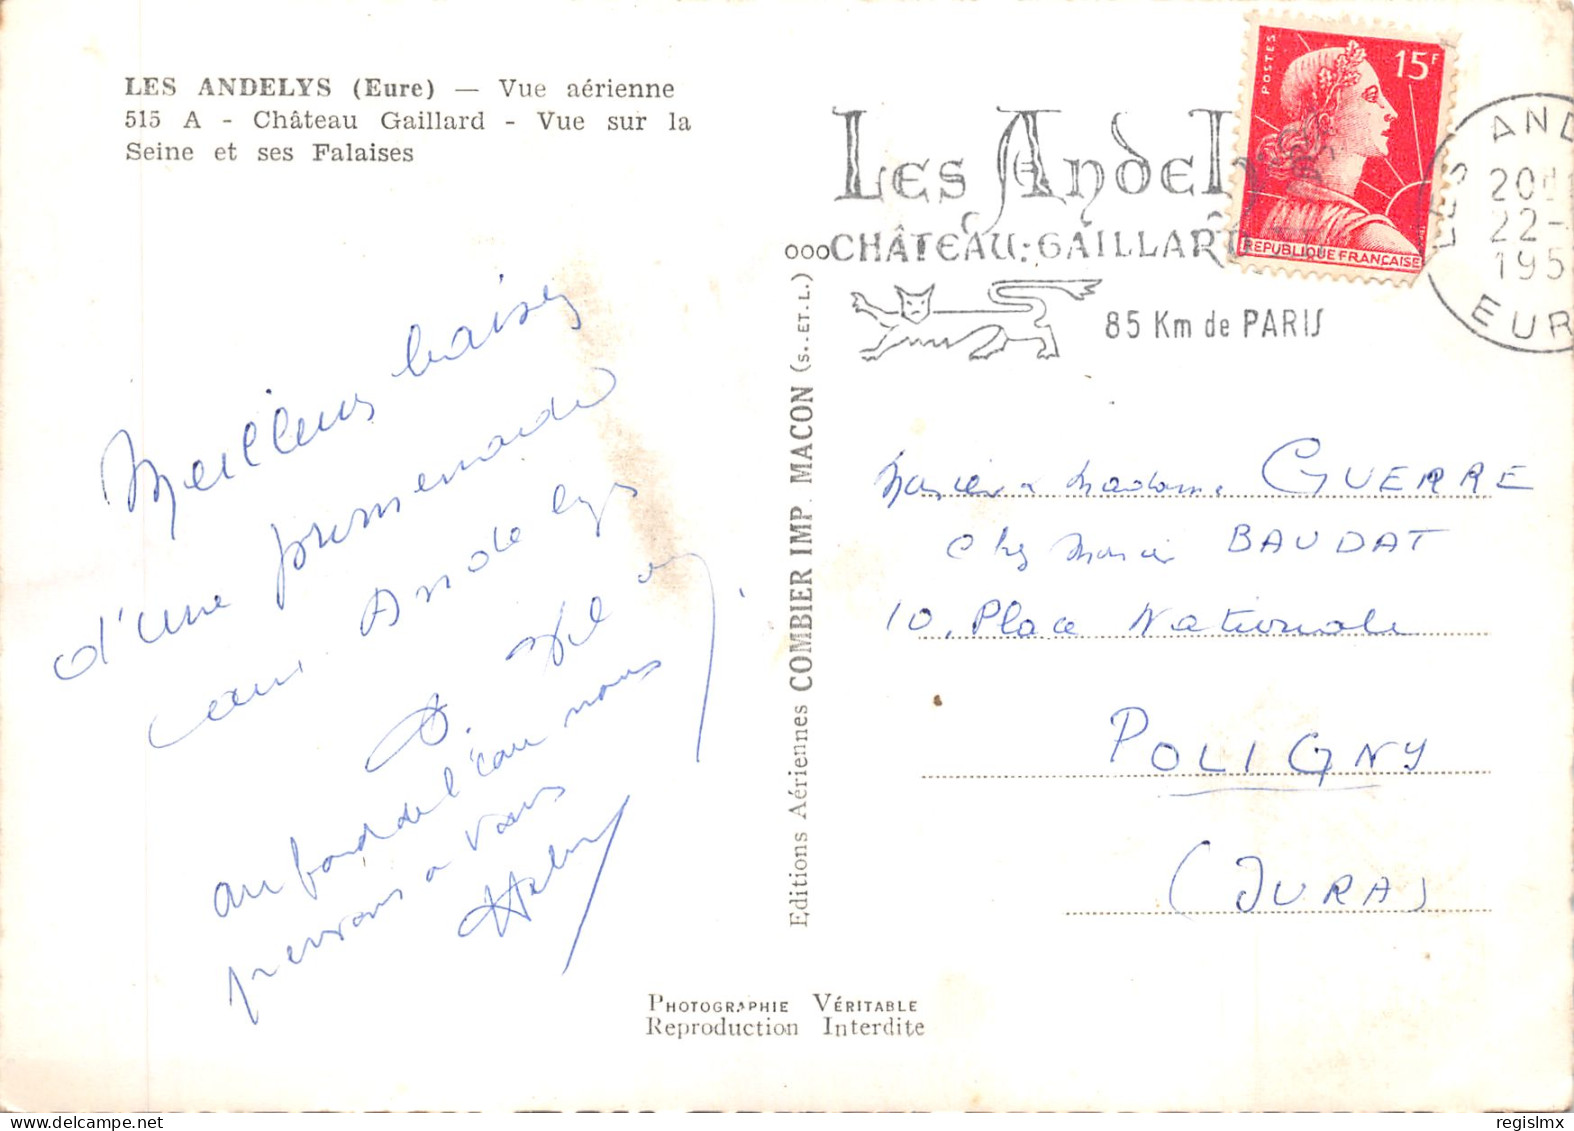 LES ANDELYS (Eure) — Vue aérienne
515 A - Château Gaillard - Vue sur la
Seine et ses Falaises
Meilleurs baisers
d'une promenade
aux Andelys
au bord de l'eau nous
pensons a vous
Editions Aériennes COMBIER IMP. MACON (S.-ET.L.)
Les Andel
CHÂTEAU:GAILLARD
85 Km de PARIS
POSTES
15F
REPUBLIQUE FRANÇAISE
LES AND
20H
22-
195
EUR
Monsieur & Madame GUERRE
Chez Monsieur BAUDAT
10, Place Nationale
POLIGNY
(JURA)
PHOTOGRAPHIE VÉRITABLE
Reproduction Interdite
regislmx